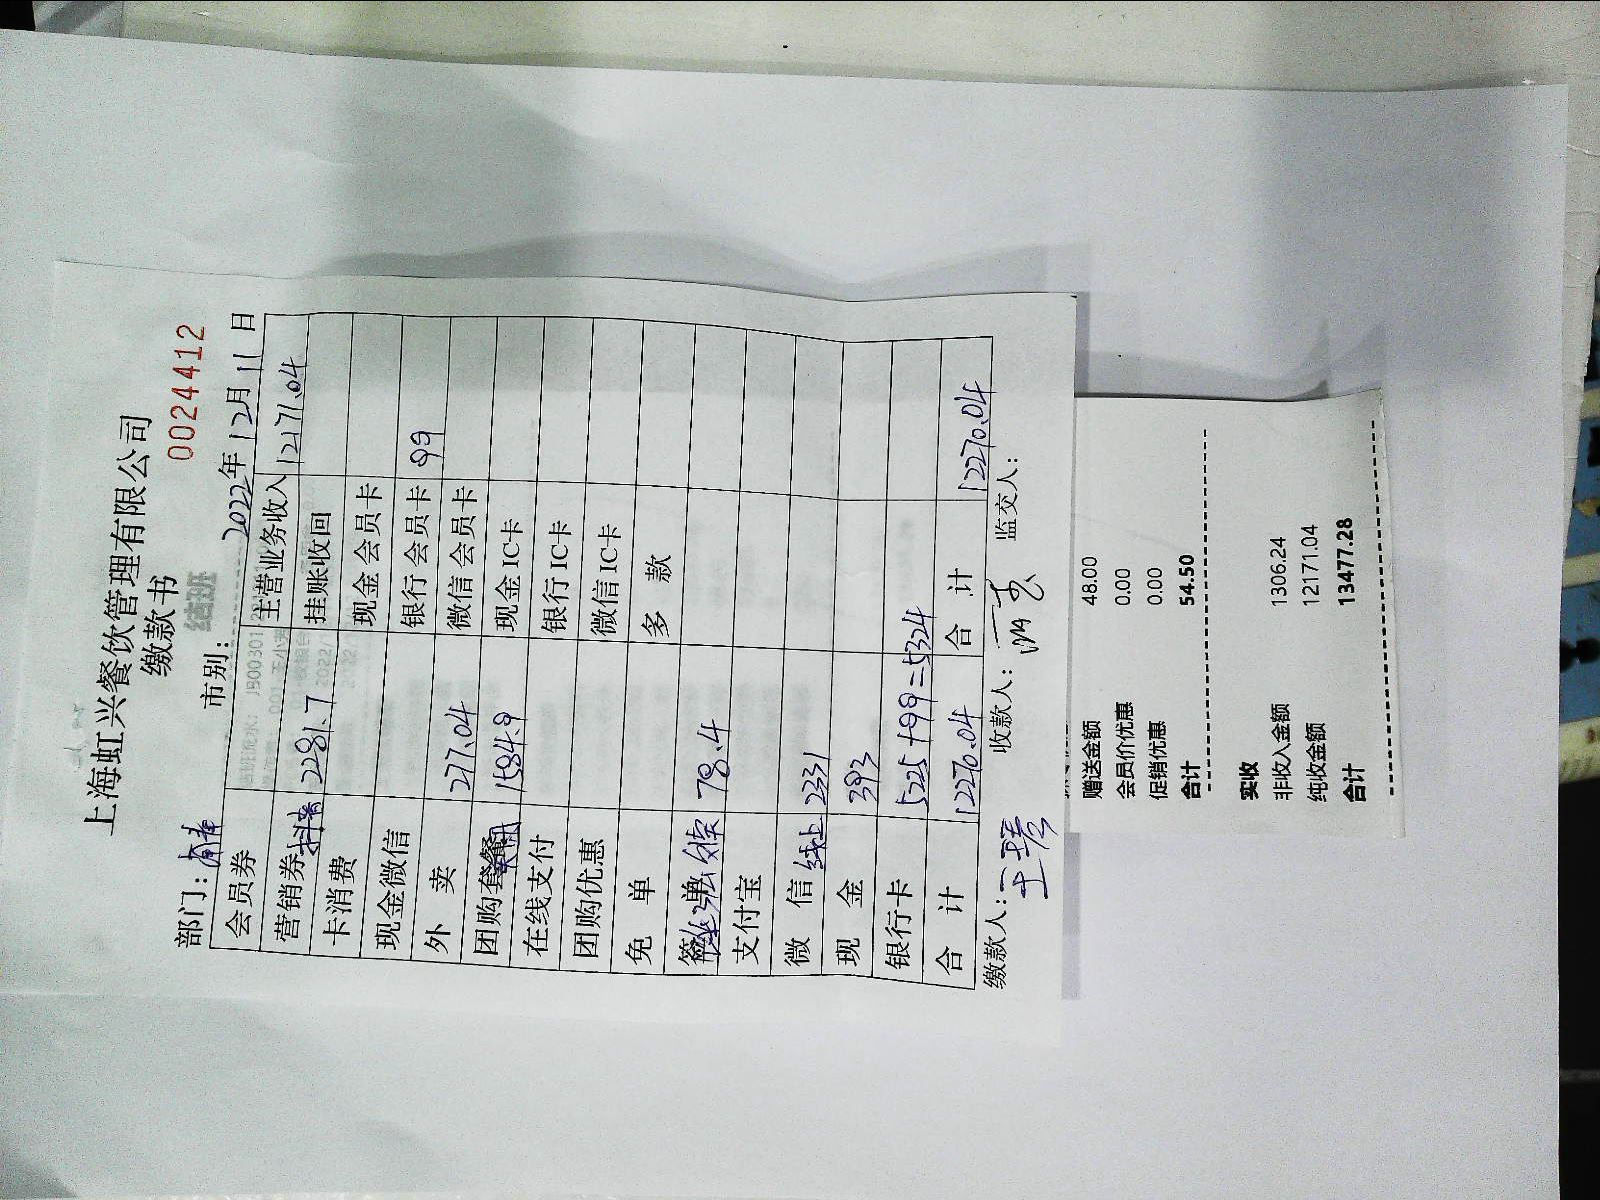 上海虹兴餐饮管理有限公司
缴款书
0024412
部门：
市别：
2022年12月11日
会员券 主营业务收入 12171.04
营销券 抖音 2281.7 挂账收回
卡消费 现金会员卡
现金微信 银行会员卡 99
外 卖 277.04 微信会员卡
团购套餐 1584.9 现金IC卡
在线支付 银行IC卡
团购优惠 微信IC卡
免 单 多 款
签 单 78.4
支付宝
微 信 线上 2331
现 金 393
银行卡 5225+99=5324
合 计 12270.04 合 计 12270.04
缴款人： 收款人： 监交人：
赠送金额 48.00
会员价优惠 0.00
促销优惠 0.00
合计 54.50
实收
非收入金额 1306.24
纯收金额 12171.04
合计 13477.28